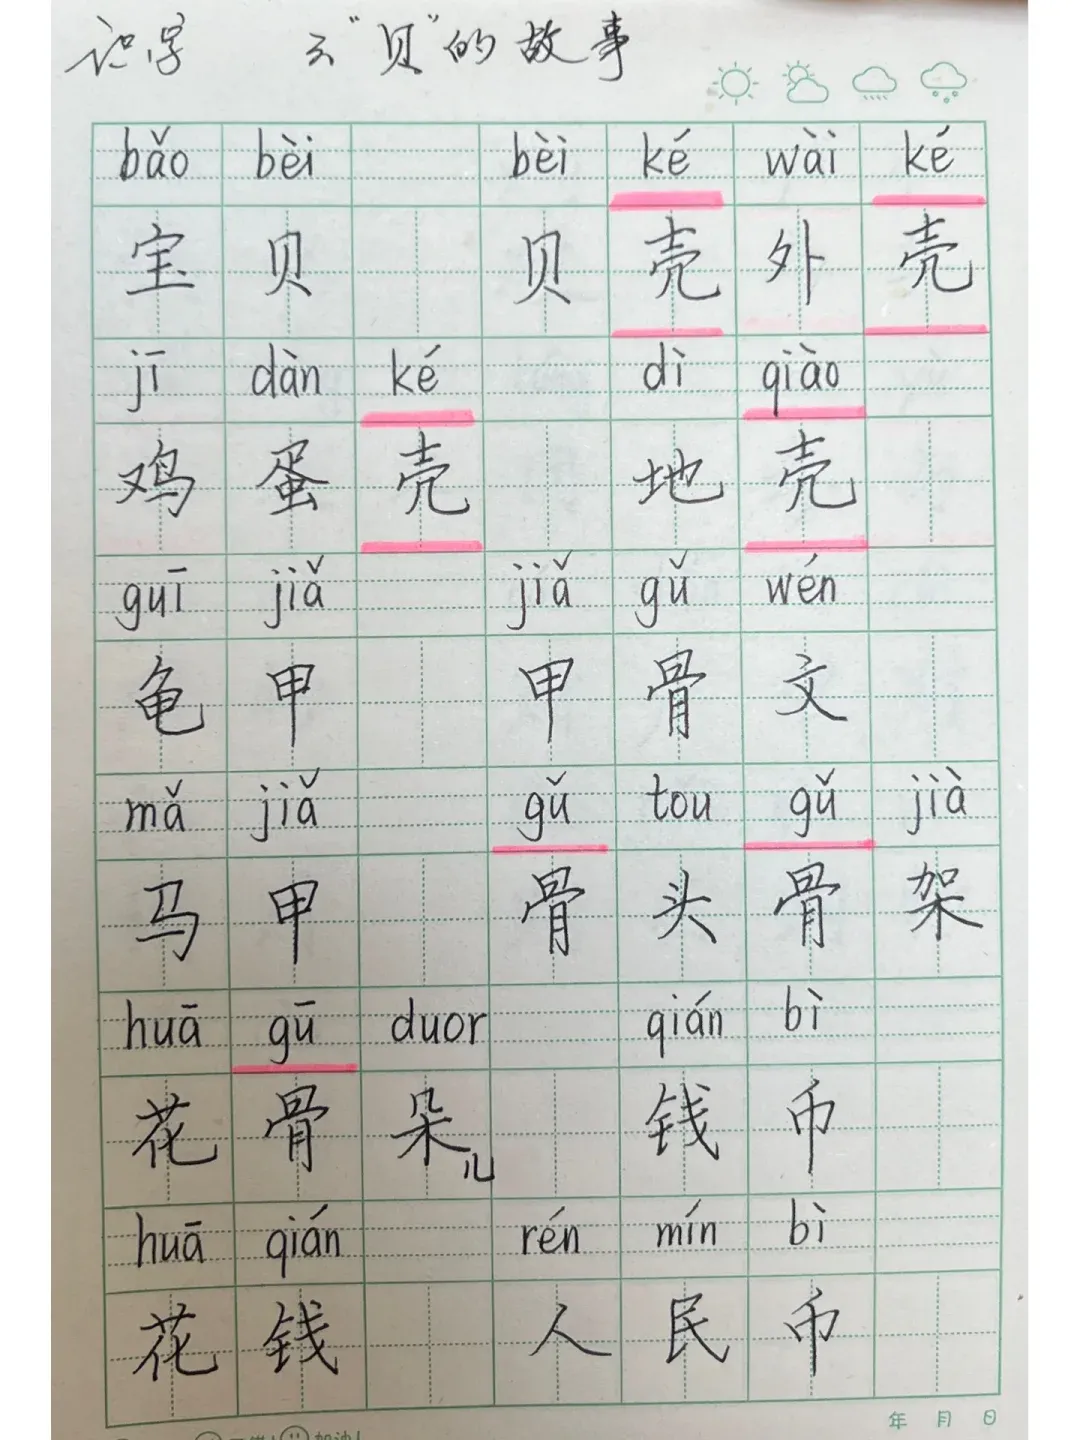 识字 3 "贝"的故事
bǎo bèi bèi ké wài ké
宝贝 贝壳 外壳
jī dàn ké dì qiào
鸡蛋壳 地壳
guī jiǎ jiǎ gǔ wén
龟甲 甲骨文
mǎ jiǎ gǔ tou gǔ jià
马甲 骨头 骨架
huā gū duor qián bì
花骨朵儿 钱币
huā qián rén mín bì
花钱 人民币
年 月 日